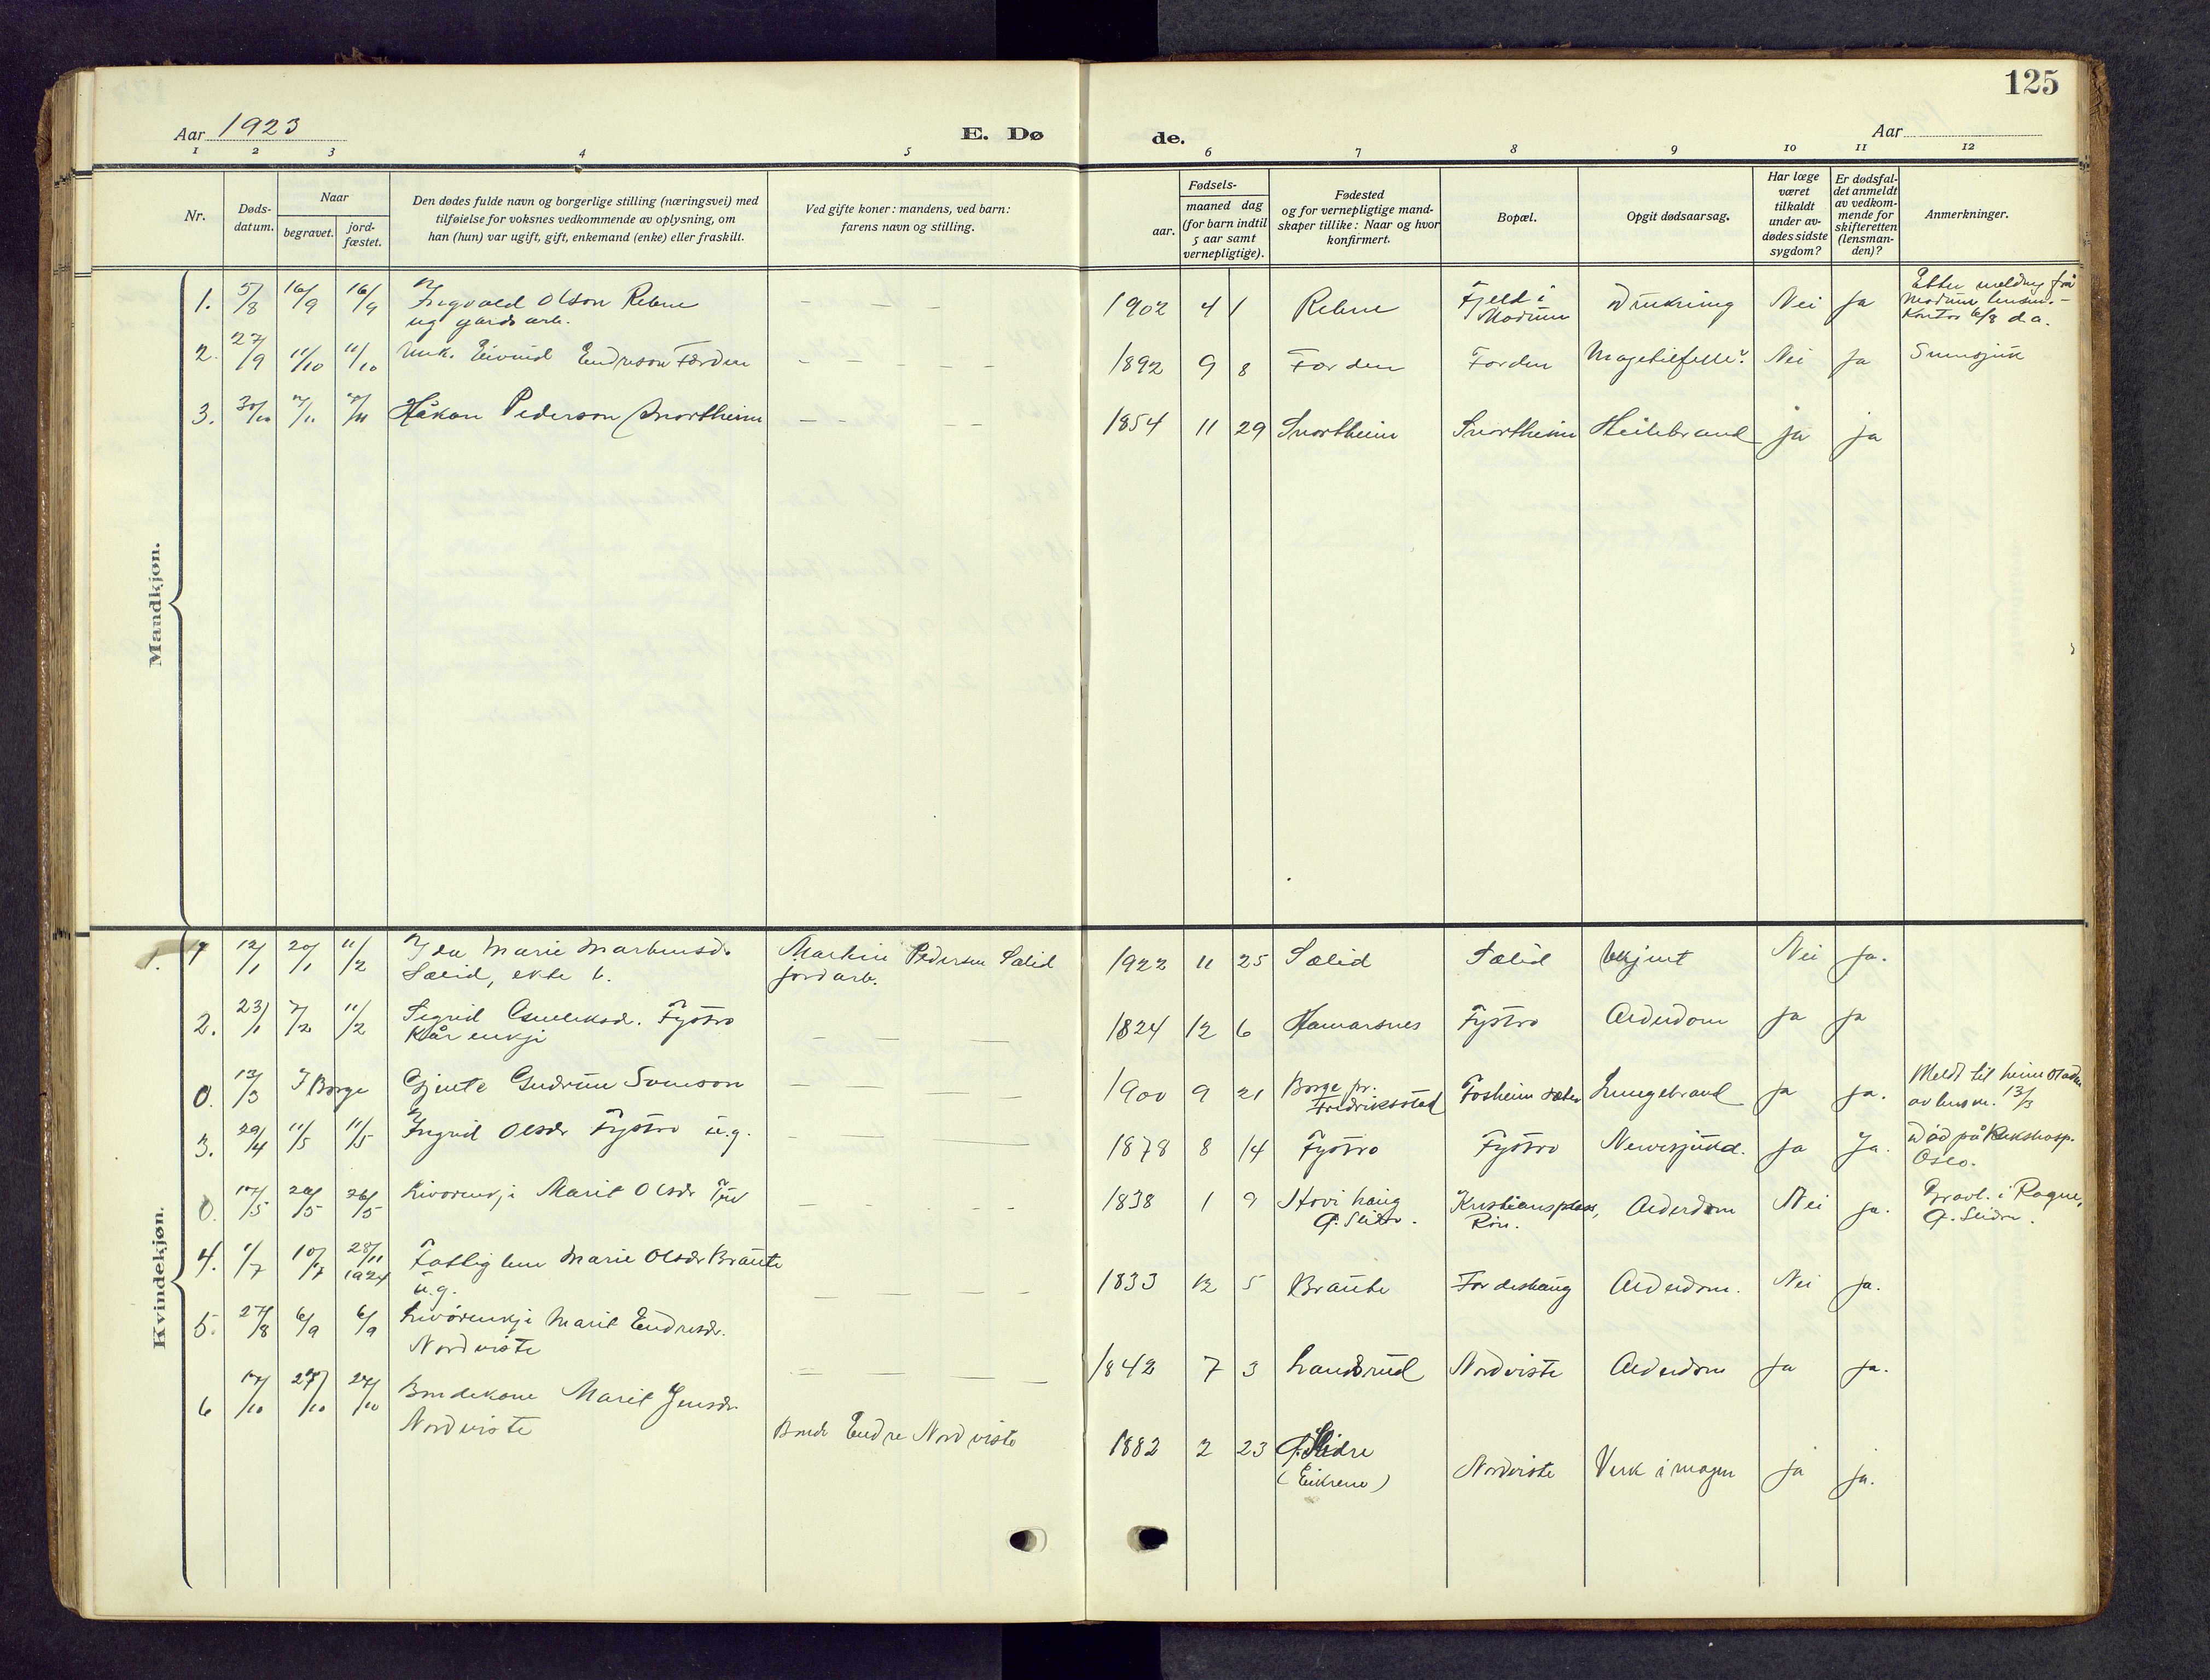 125
Aar 1923
E. Dø
de.
Aar
1 2 3 4 5 6 7 8 9 10 11 12
Nr.
Døds-
datum.
Naar
begravet.
jord-
fæstet.
Den dødes fulde navn og borgerlige stilling (næringsvei) med
tilføielse for voksnes vedkommende av oplysning, om
han (hun) var ugift, gift, enkemand (enke) eller fraskilt.
Ved gifte koner: mandens, ved barn:
farens navn og stilling.
aar.
Fødsels-
maaned dag
(for barn indtil
5 aar samt
vernepligtige).
Fødested
og for vernepligtige mand-
skaper tillike: Naar og hvor
konfirmert.
Bopæl.
Opgit dødsaarsag.
Har læge
været
tilkaldt
under av-
dødes sidste
sygdom?
Er dødsfal-
det anmeldt
av vedkom-
mende for
skifteretten
(lensman-
den)?
Anmerkninger.
Mandkjøn.
1. 5/8 16/9 16/9 Ingvald Olson Rebne – – – 1902 4 1 Rebne Fjeld i Drukning Nei Ja Etter melding frå
ug gards arb. Modum Modum lensm.-
kontor 6/8 d.a.
2. 27/9 11/10 11/10 Unk. Eivind Endreson Førden – – – – – 1892 9 8 Førden Førden Magetilfelle? Nei Ja Sinnsjuk
3. 30/10 7/11 7/11 Håkon Pederson Snortheim – – – – 1854 11 29 Snortheim Snortheim Heilebrand ja ja
Kvindekjøn.
1. 12/1 20/1 11/2 Ida Marie Martinsd. Martin Pedersen Sælid 1922 11 25 Sælid Sælid Ukjent Nei Ja.
Sælid, ekte b. Jordarb.
2. 23/1 7/2 11/2 Sigrid Fystro – – – 1824 12 6 Hamarsnes Fystro Alderdom Ja Ja
Kår enkje
0. 12/3 I Borge Gjente Gudrun Svenson – – – 1900 9 21 Borge pr. Fosheim sæter Lungebrand Ja Ja. Meldt til heimstaden
Fredriksstad av lensm. 13/3
3. 29/4 11/5 11/5 Ingrid Olsdr Fystro u.g. – – – 1878 8 14 Fystro Fystro Nervesjukd. Ja Ja. Død på Rikshosp.
Oslo.
0. 17/5 26/5 26/5 Livørenkje Marit Olsdr – – – – – 1838 1 9 Hovi haug Kristiansplass, Alderdom Nei Ja. Gravl. i Rogne,
Ø. Slidre. Røn. Ø. Slidre.
4. 1/7 10/7 28/11 Fattiglem Marie Olsdr Braute – – – – 1833 12 5 Braute Førdeshaug Alderdom. Nei Ja.
1924 u.g.
5. 27/8 6/9 6/9 Livørenkje Marit Endresdr. – – – – 1842 7 3 Landsrud Nordviste Alderdom Ja Ja.
Nordviste
6 17/10 27/10 27/10 Bondekone Marit Jensdr Bonde Endre Nordviste 1882 2 23 Ø. Slidre Nordviste Verk i magen ja ja.
Nordviste (Eikrene)